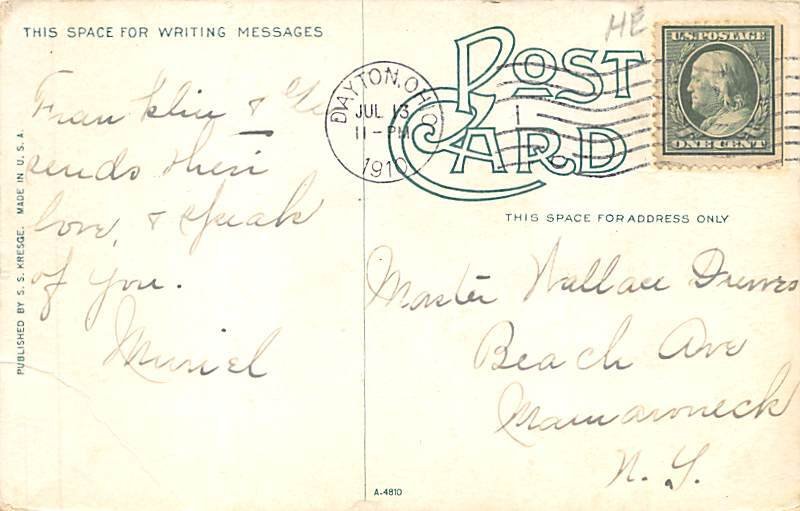 THIS SPACE FOR WRITING MESSAGES
HE
POST
CARD
U.S. POSTAGE
ONE CENT
DAYTON, OHIO
JUL 13
11-PM
1910
THIS SPACE FOR ADDRESS ONLY
Franklin &
sends their
love, & speak
of you.
Muriel
Master Wallace
Beach Ave
Mamaroneck
N. Y.
PUBLISHED BY S. S. KRESGE. MADE IN U.S.A.
A-4810